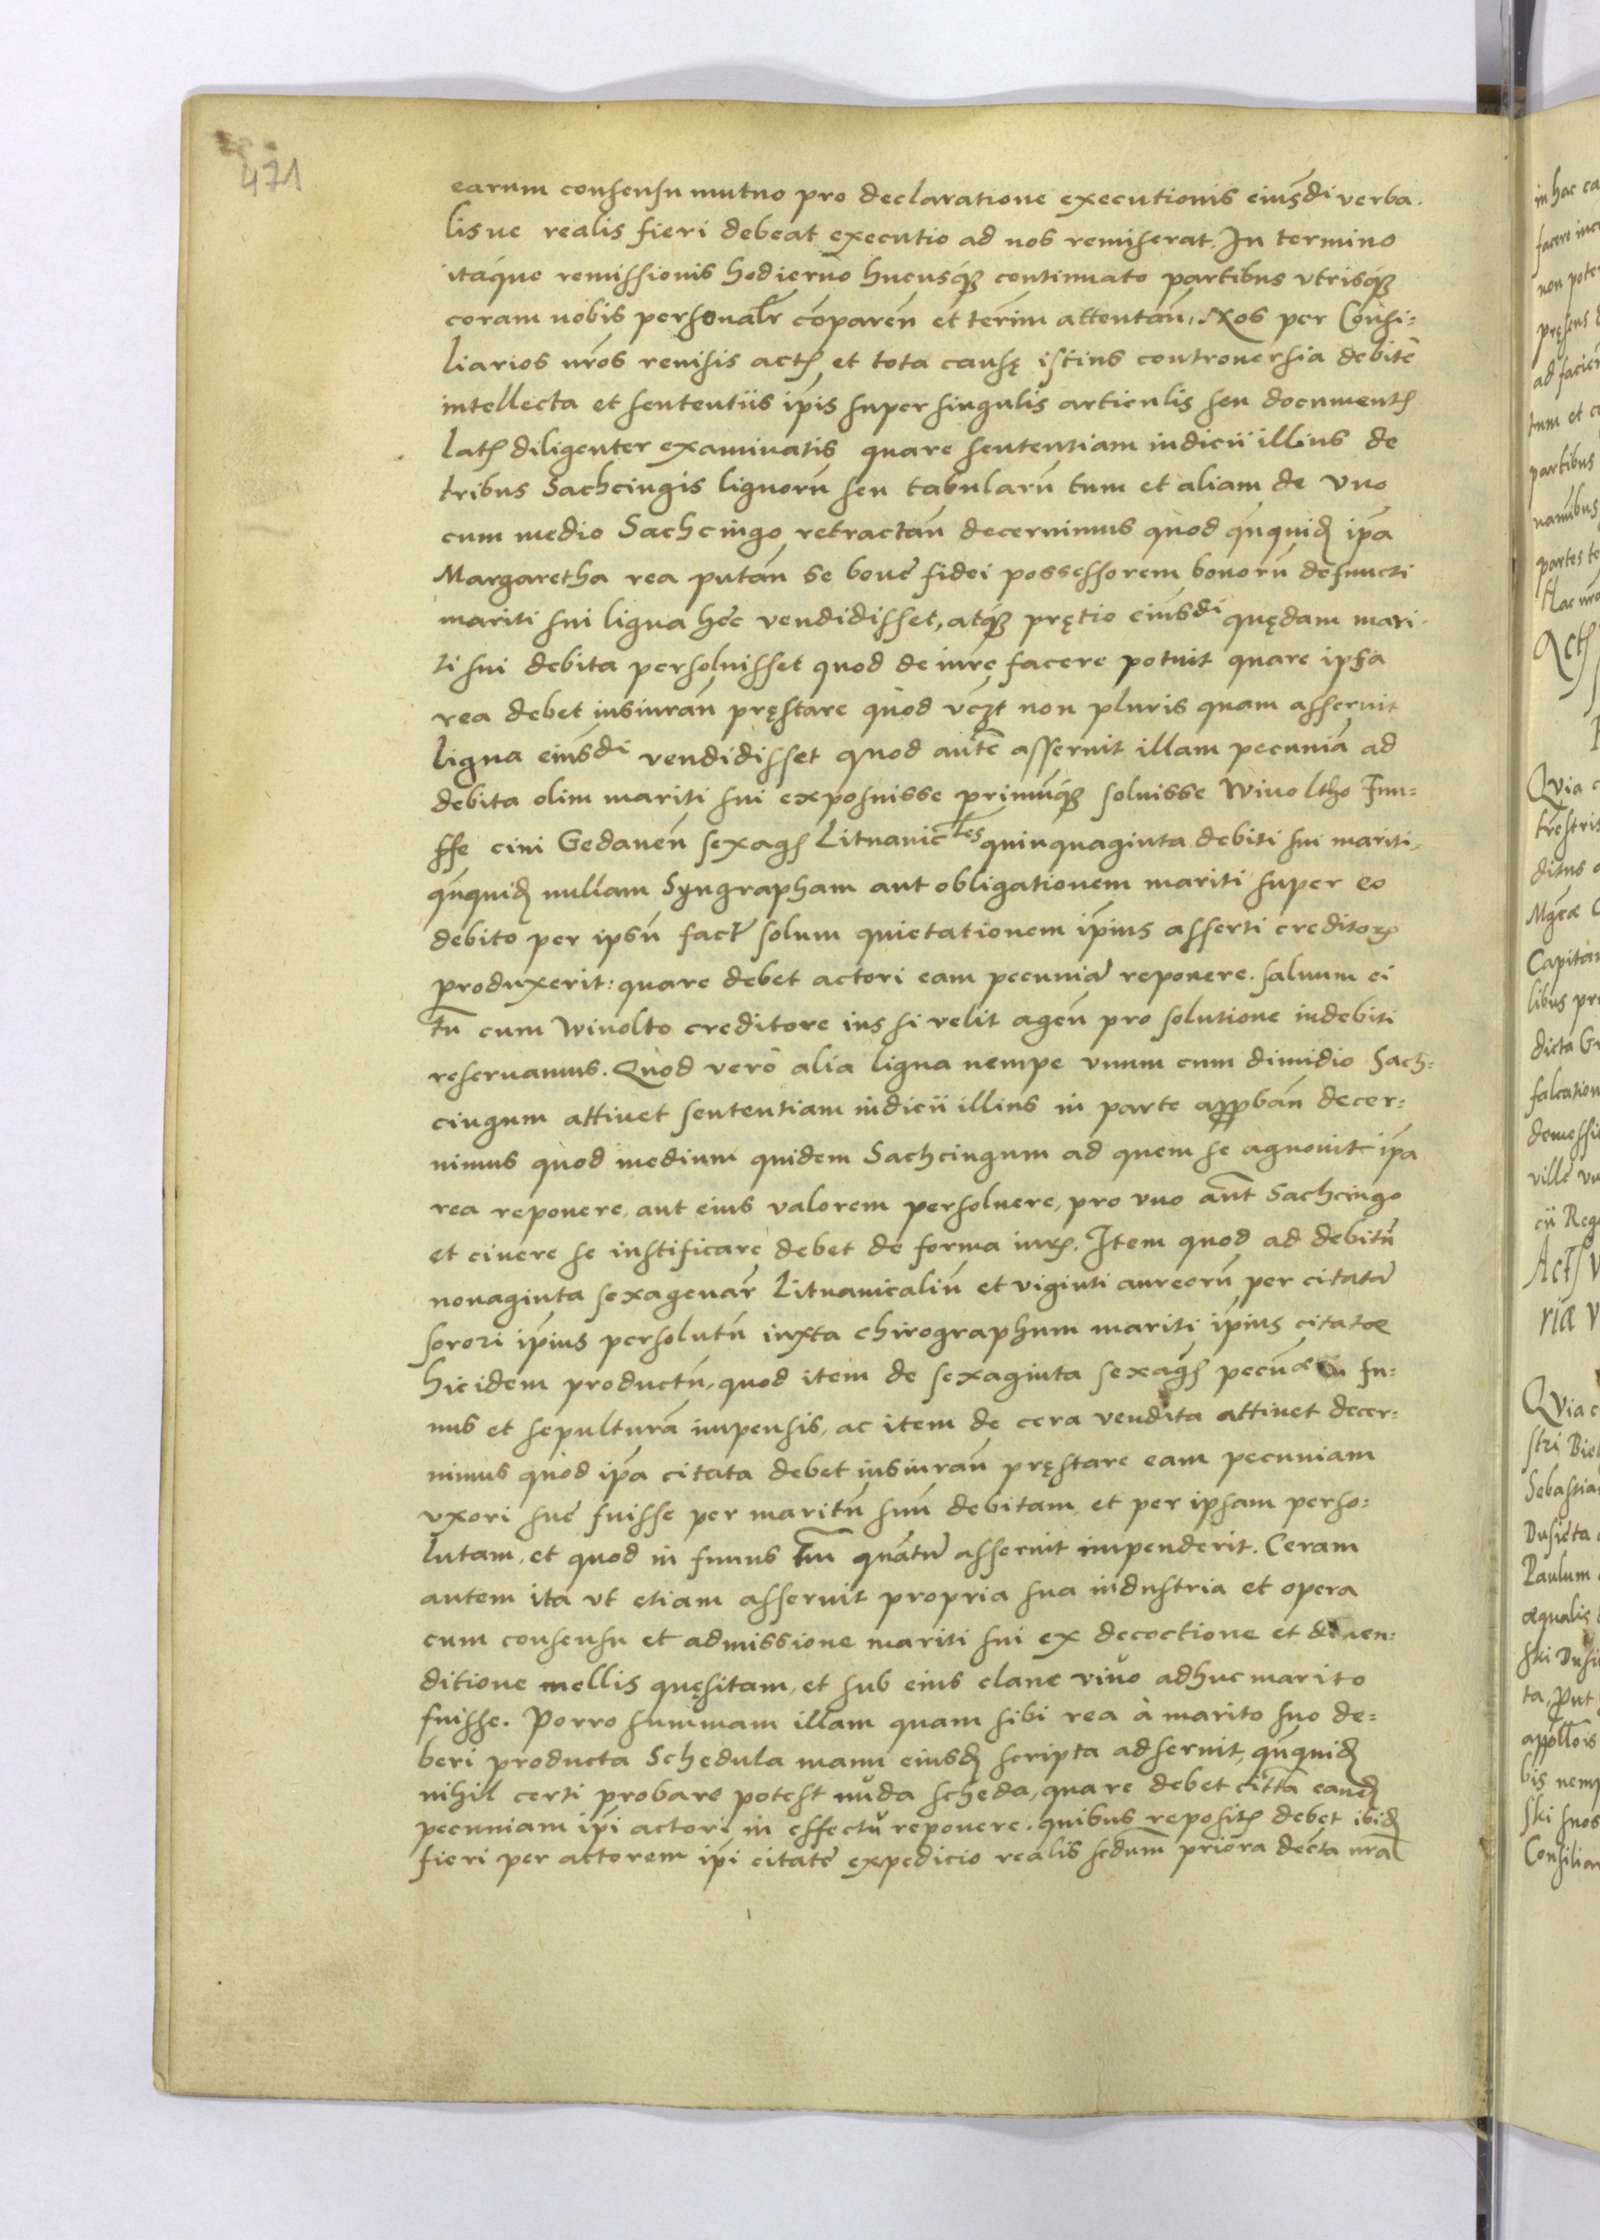 471
earum consensu mutuo pro declaratione executionis eiusdi verba-
lis ue realis fieri debeat executio ad nos remiserat. In termino
itaque remissionis hodierno hucusq3 continuato partibus vtrisq3
coram nobis personalr comparen et termin attentan. Nos per Consi=
liarios nros reuisis act et tota causę istius controuersia debite
intellecta et sententiis ipis super singulis articulis seu document
lat diligenter examinatis quare sententiam iudicii illius de
tribus Sachcingis lignoru seu tabularu tum et aliam de vno
cum medio Sachcingo retractan decernimus quod qnquid ipa
Margaretha rea putan se bone fidei possessorem bonoru defuncti
mariti sui ligna hec vendidisset, atq3 prętio eiusdi quędam mari-
ti sui debita persoluisset quod de iure facere potuit quare ipsa
rea debet iusiuran pręstare quod vczt non pluris quam asseruit
ligna eiusdi vendidisset quod aute asseruit illam pecunia ad
debita olim mariti sui exposuisse primuq3 soluisse Winoltho
cini Gedanen sexag Lituanicles quinquaginta debiti sui mariti,
qnquid nullam Syngrapham aut obligationem mariti super eo
debito per ipsu fact solum quietationem ipius asserti creditor
produxerit: quare debet actori eam pecunia reponere. saluum ei
tn cum Winolto creditore ius si velit agen pro solutione indebiti
reseruamus. Quod vero alia ligna nempe vnum cum dimidio Sach=
cingum attinet sententiam iudicii illius in parte approban decer=
nimus quod medium quidem Sachcingum ad quem se agnouit ipa
rea reponere, aut eius valorem persoluere, pro vno aut Sachcingo
et cinere se iustificare debet de forma iur. Item quod ad debitu
nonaginta sexagenar Lituanicaliu et viginti aureoru per citata
sorori ipius persolutu iuxta chirographum mariti ipius citatæ
hic idem productu, quod item de sexaginta sexag pecun in fu=
nus et sepultura impensis, ac item de cera vendita attinet decer=
nimus quod ipa citata debet iusiuran pręstare eam pecuniam
vxori sue fuisse per maritu suu debitam et per ipsam perso=
lutam, et quod in funus tm quatu asseruit impenderit. Ceram
autem ita vt etiam asseruit propria sua industria et opera
cum consensu et admissione mariti sui ex decoctione et diuen=
ditione mellis quęsitam, et sub eius claue viuo adhuc marito
fuisse. Porro summam illam quam sibi rea à marito suo de=
beri producta Schedula manu eiusd scripta adseruit, qnquid
nihil certi probare potest nuda scheda, quare debet citta eand
pecuniam ipi actori in effectu reponere. quibus reposit debet ibid
fieri per actorem ipi citate expedicio realis scdum priora decta nra